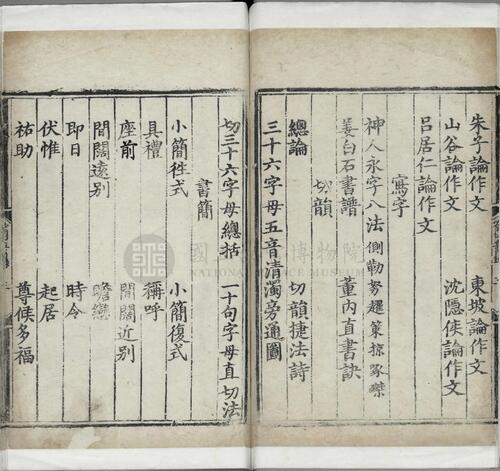 朱子論作文　東坡論作文
山谷論作文　沈隱侯論作文
呂居仁論作文
寫字
神人永字八法側勒努趯策掠啄磔
姜白石書譜　董內直書訣
切韻
總論　切韻捷法詩
三十六字母五音清濁旁通圖
切三十六字母總括　一十句字母直切法
書簡
小簡徃式　小簡復式
具禮　稱呼
座前　間闊近別
間闊遠別　瞻戀
即日　時令
伏惟　起居
祐助　尊候多福
NATIONAL PALACE MUSEUM